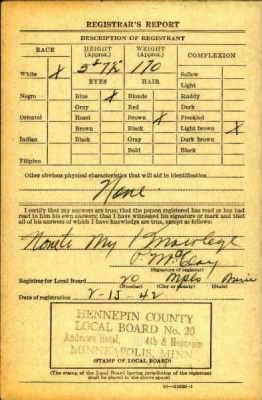 REGISTRAR'S REPORT
DESCRIPTION OF REGISTRANT
RACE HEIGHT (Approx.) WEIGHT (Approx.) COMPLEXION
5' 7½" 170
White X Sallow
EYES HAIR Light
Negro Blue X Blonde Ruddy
Gray Red Dark
Oriental Hazel Brown X Freckled
Brown Black Light brown X
Indian Black Gray Dark brown
Bald Black
Filipino
Other obvious physical characteristics that will aid in identification
None
I certify that my answers are true; that the person registered has read or has had
read to him his own answers; that I have witnessed his signature or mark and that
all of his answers of which I have knowledge are true, except as follows:
My Knowlege
(Signature of registrar)
Registrar for Local Board 20 Mpls Minn
(Number) (City or county) (State)
Date of registration 2-15-42
HENNEPIN COUNTY
LOCAL BOARD No. 20
Andrews Hotel, 4th & Hennepin
MINNEAPOLIS, MINN
(STAMP OF LOCAL BOARD)
(The stamp of the Local Board having jurisdiction of the registrant
shall be placed in the above space.)